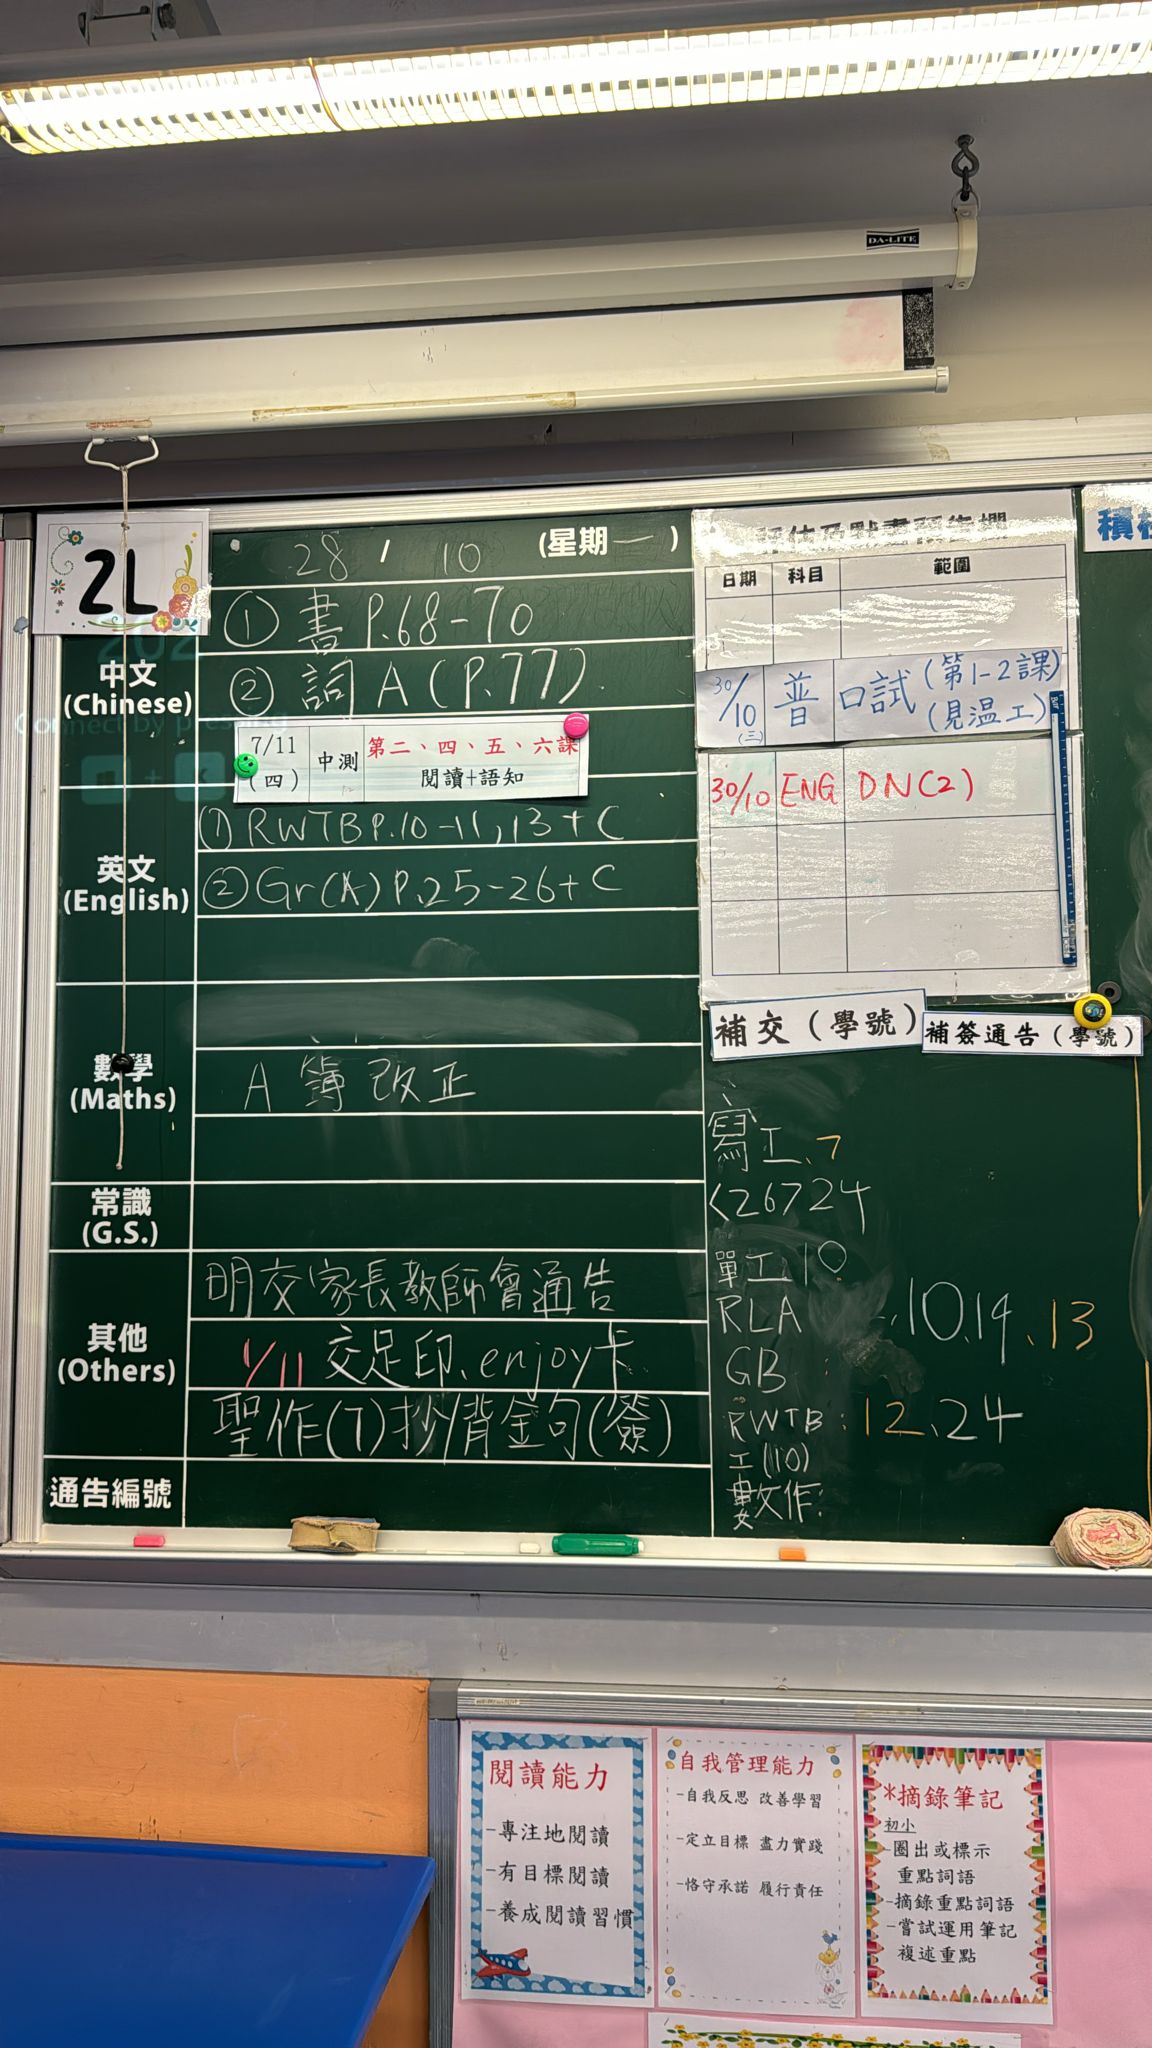 DA-LITE
2L
28 / 10 (星期一)
中文
(Chinese)
① 書 P.68-70
② 詞 A (P.77)
7/11
(四)
中測
第二、四、五、六課
閱讀+語知
英文
(English)
① RWTB P.10-11, 13 + C
② Gr(A) P.25-26 + C
數學
(Maths)
A 簿 改正
常識
(G.S.)
其他
(Others)
明交家長教師會通告
1/11 交足印、enjoy卡
聖作(7)抄/背金句(簽)
通告編號
日期 科目 範圍
30/10 (三) 普 口試 (第1-2課) (見溫工)
30/10 ENG DN(2)
補交 (學號)
補簽通告 (學號)
寫工、7
<26724
單工、10
RLA 10、14、13
GB :
RWTB : 12、24
工(10)
數作:
閱讀能力
-專注地閱讀
-有目標閱讀
-養成閱讀習慣
自我管理能力
-自我反思 改善學習
-定立目標 盡力實踐
-恪守承諾 履行責任
*摘錄筆記
初小
-圈出或標示
重點詞語
-摘錄重點詞語
-嘗試運用筆記
複述重點